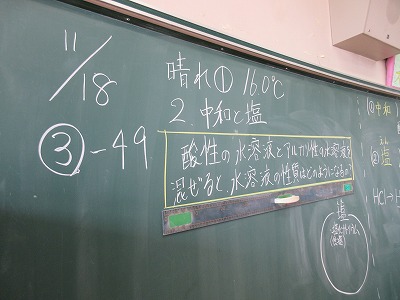 11/18
晴れ ① 16.0℃
2. 中和と塩
③-49
酸性の水溶液とアルカリ性の水溶液を
混ぜると、水溶液の性質はどのようになるか?
①中和
②塩
HCl→H
塩
塩化ナトリウム